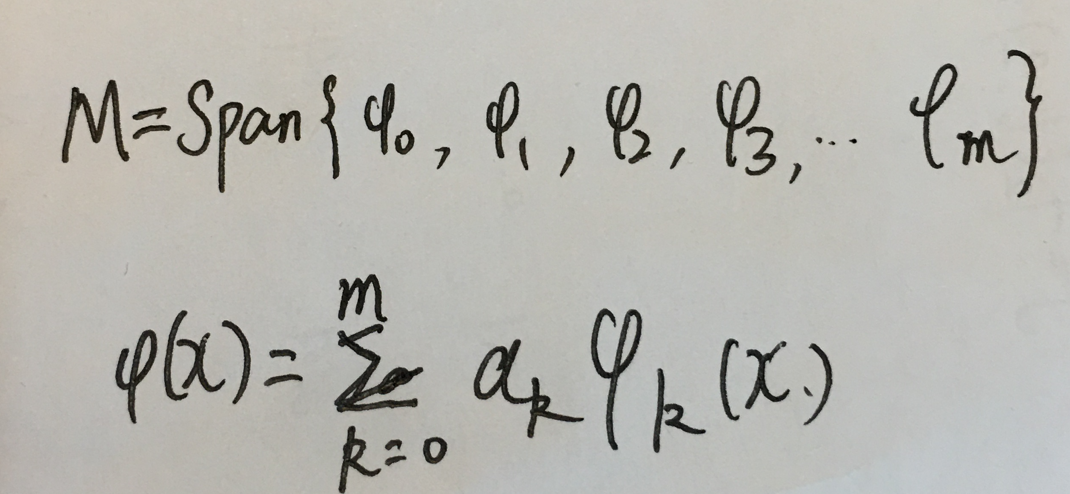 M=Span{φ₀, φ₁, φ₂, φ₃,… φₘ}
φ(x)=∑_{k=0}^{m} aₖφₖ(x)